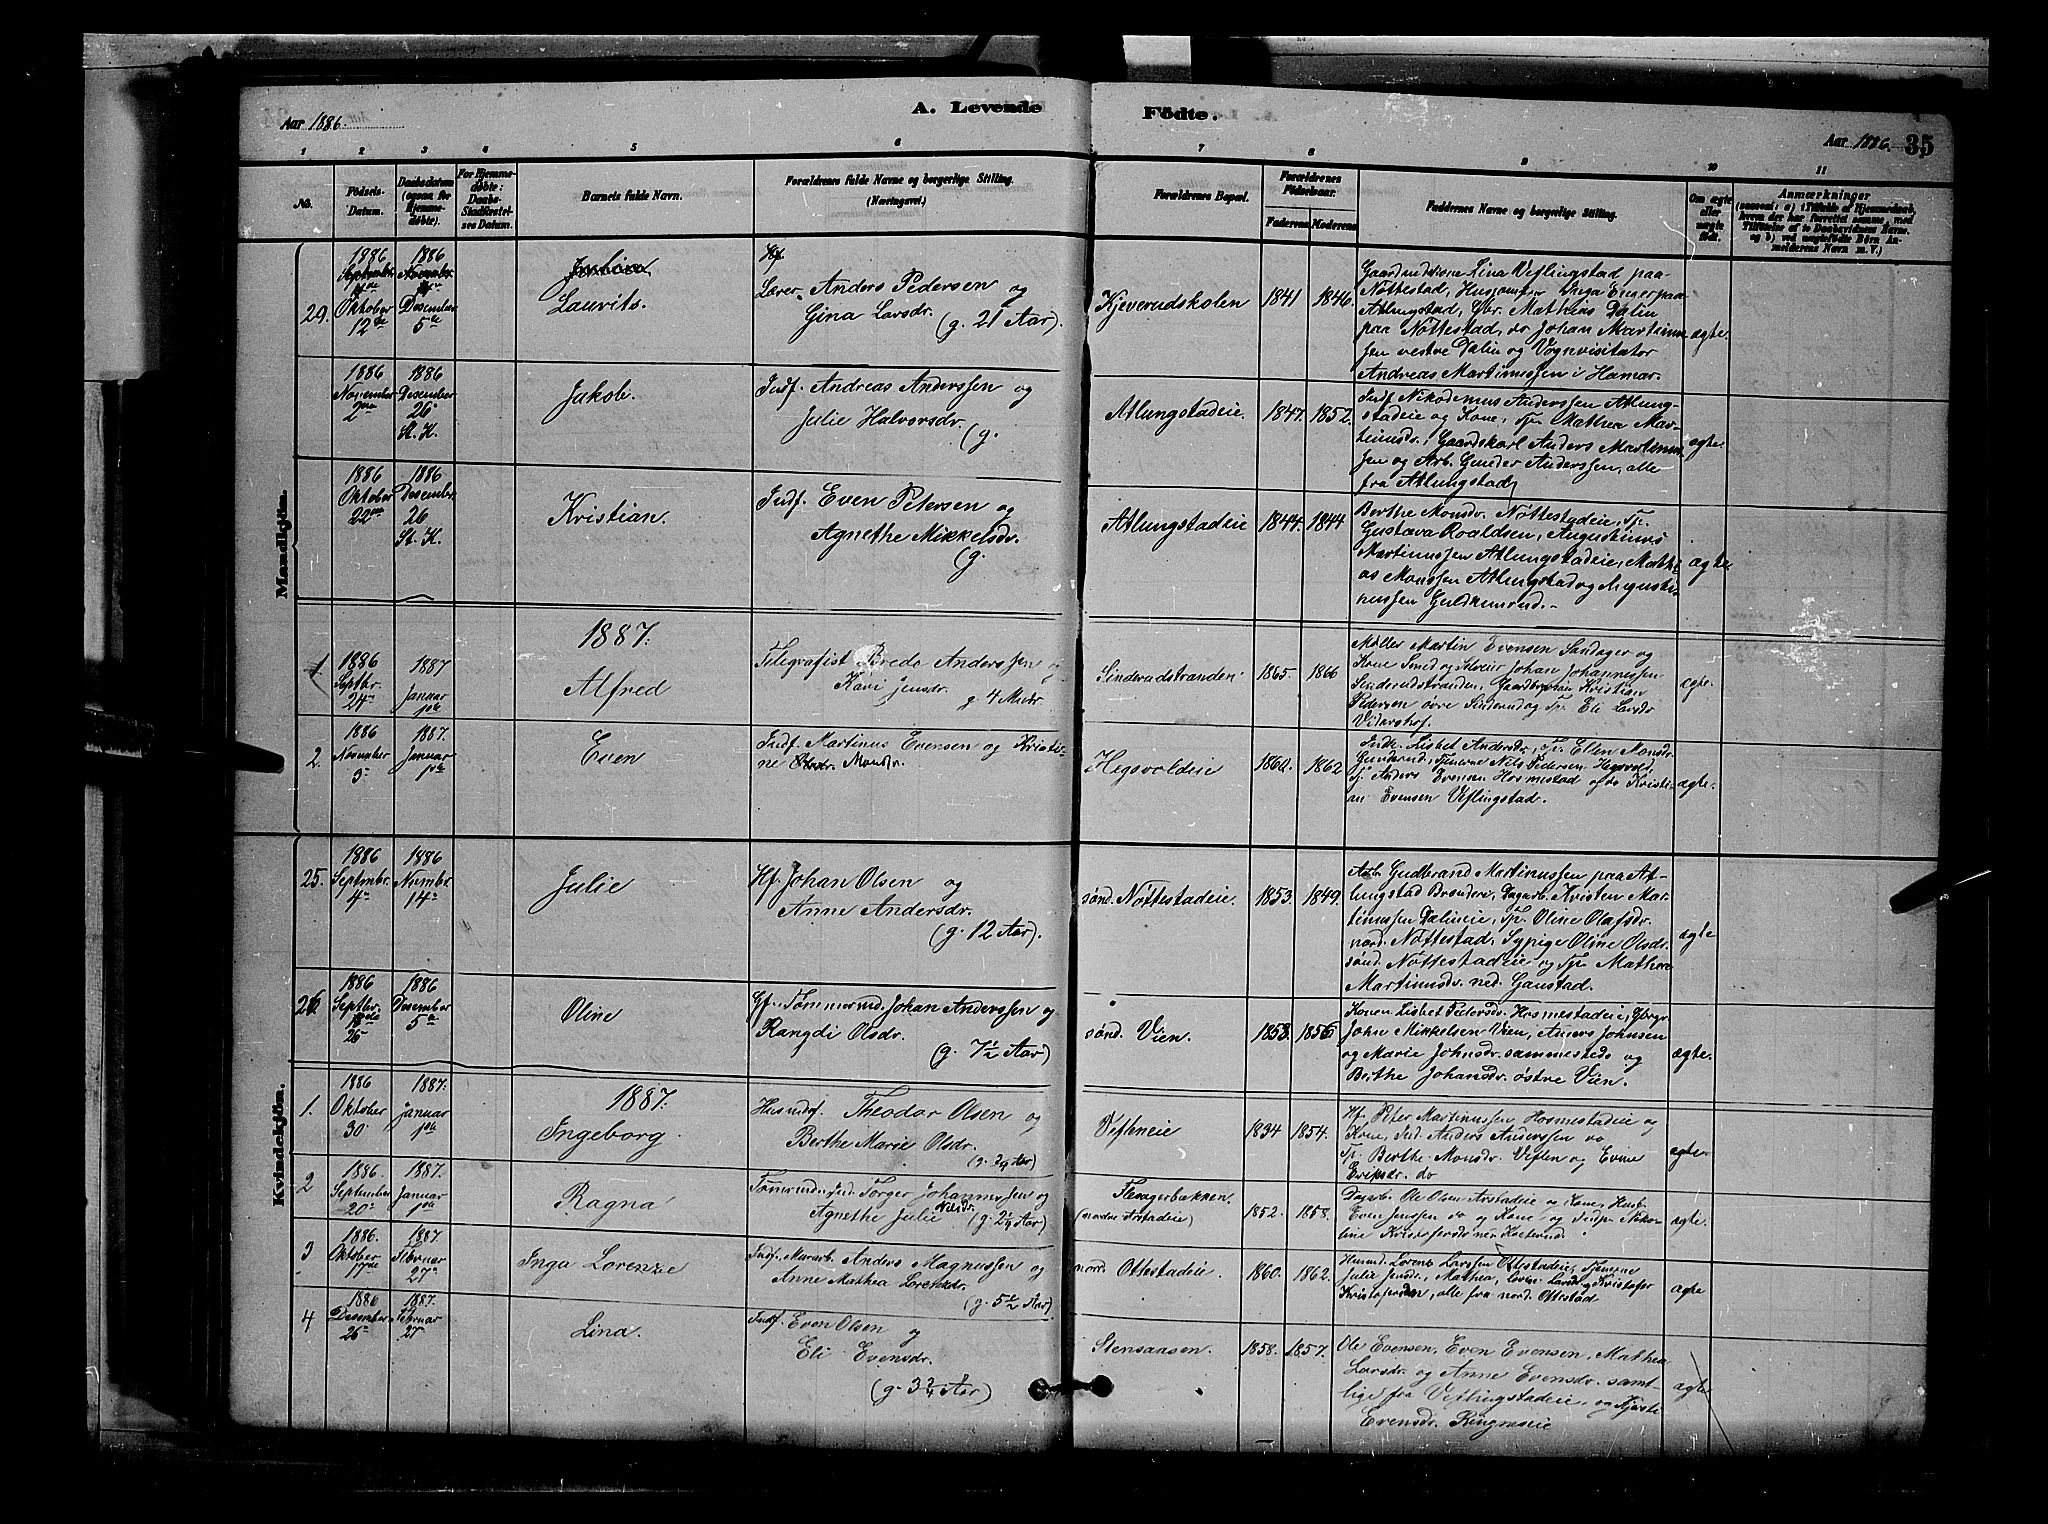 A. Levende
Födte.
Aar 1886.
Aar 1886. 35
1 2 3 4 5 6 7 8 9 10 11
No.
Födsels-
Datum.
Daabsdatum
(ogsaa for
Hjemme-
döbte).
For Hjemme-
döbte:
Daabs-
Stadfæstel-
ses Datum.
Barnets fulde Navn.
Forældrenes fulde Navne og borgerlige Stilling.
(Næringsvei.)
Forældrenes Bopæl.
Forældrenes
Födselsaar.
Faderens Moderens
Faddernes Navne og borgerlige Stilling.
Om ægte
eller
uægte
född.
Anmærkninger
Mandkjön.
29.
1886
Oktober
12te
1886
Desember
5te
Laurits.
Lærer Anders Pedersen og
Gina Larsdr. (g. 21 Aar).
Kjeverudskolen
1841
1846.
Lina Veflingstad paa
Nøttestad,
Atlungstad, Gbr. Mathias Dalin
paa Nøttestad, do Johan Martinus-
sen vestre Dalin og Vognvisitator
Andreas Martinussen i Hamar.
ægte.
1886
November
2den
1886
Desember
26
St. K.
Jakob.
Indf. Andreas Anderssen og
Julie Halvorsdr.
(g.
Atlungstadeie.
1847.
1852.
Indf. Nikodemus Anderssen Atlung-
stadeie og Kone, Tp. Mathea Mar-
tinusdr., Gaardskarl Anders Martinus-
sen og Arb. Gunder Anderssen, alle
fra Atlungstad
ægte.
1886
Oktober
22
1886
Desember
26
St. K.
Kristian.
Indf. Even Petersen og
Agnethe Mikkelsdr.
(g.
Atlungstadeie
1844.
1844
Berthe Monsdr. Nøttestadeie, Tp.
Gustava Roaldsen, Augustinus
Martinussen Atlungstadeie, Mathi-
as Monssen Atlungstad og Augusti-
nussen
ægte
1887.
1.
1886
Septbr.
24
1887
Januar
1ste
Alfred
Telegrafist Bredo Anderssen og
Kari Jensdr. g. 4 Mndr
Sinderudstranden
1865.
1866
Møller Martin Evensen Sandager og
Kone Smed og Johan Johannessen
Sinderudstranden, Kristian
Pedersen øvre Sinderud og Tp. Eli Larsdr
Vidarshof.
ægte.
2.
1886
November
3
1887.
Januar
1ste
Even
Indf. Martinus Evensen og Kristi-
ne Monsdr.
Hegsvoldeie
1860.
1862
Lisbet Andersdr, Tp. Ellen Monsdr.
Tjenerne Nils Pedersen Hegsvold,
Anders Evensen Hosmestad og do Kristi-
an Evensen Veflingstad.
ægte.
Kvindekjön.
25.
1886
Septembr.
4
1886
Novmbr.
14
Julie
Hf. Johan Olsen og
Anne Andersdr.
(g. 12 Aar).
sönd. Nöttestadeie.
1853.
1849.
Arb Gudbrand Martinussen paa At-
lungstad Brænderi, Dagarb. Kristen Mar-
tinussen Dalineie, Tp. Oline Olafsdr.
nord. Nøttestad, Sypige Oline Olsdr.
sønd. Nøttestadeie og Tp. Mathea
Martinusdr. ned. Gaustad.
ægte
26
1886
Septbr.
26
1886
Desember
5
Oline
Gf. Tømmermd. Johan Anderssen og
Rangdi Olsdr.
(g. 7½ Aar)
sønd. Vien.
1858.
1856
Konen Lisbet Pedersdr. Hosmestadeie, Gbrgr.
John Mikkelsen Vien, Anders Johnsen
og Marie Johnsdr. sammesteds og
Berthe Johansdr. østre Vien.
ægte.
1887.
1.
1886
Oktober
30
1887.
Januar
1ste
Ingeborg
Husmdsf. Theodor Olsen og
Berthe Marie Olsdr.
(g. ¾ Aar)
Vefleneie
1834
1854.
Hf. Peter Martinussen Hosmestadeie og
Kone, Ind. Anders Anderssen do
Tp. Berthe Monsdr. Veflen og Evine
Eriksdr. do
ægte
2
1886.
September
20
1887.
Januar
1ste
Ragna
Tømrmd. Ind. Torger Johannessen og
Agnethe Julie Nilsdr. (g. 2¼ Aar)
Flesagerbakken.
(nordre Arstadeie)
1852.
1858.
Dagarb. Ole Olsen Arstadeie og Kone, Husf.
Even Jenssen do og Kone og Indp. Niko-
line Kristofersdr
ægte.
3
1886.
Oktober
17de
1887
Februar
27
Inga Lorenze
Indf. Murarb. Anders Magnussen og
Anne Mathea Lorentsdr.
(g. 5½ Aar)
nord. Ottestadeie.
1860.
1862.
Husmd. Lorens Larssen Ottestadeie, Tjenerne
Julie Jensdr., Mathea, Larsdr og Kristofer
Kristofersen, alle fra nord. Ottestad
ægte
4
1886
Desember
26
1887.
Februar
27
Lina.
Indf. Even Olsen og
Eli Evensdr.
(g. 3¾ Aar)
Stensansen.
1858.
1857.
Ole Evensen, Even Evensen, Mathea
Larsdr. og Anne Evensdr. samt-
lige fra Veflingstadeie, og Kjersti
Evensdr. Ringneseie
ægte